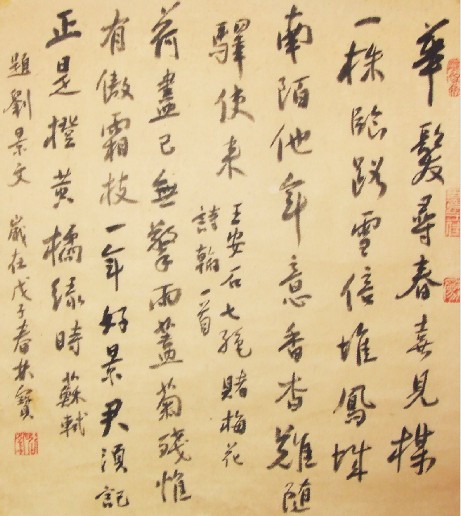 華髮尋春喜見梅
一株臨路雪倍堆鳳城
南陌他年意香杳難隨
驛使來
王安石七絕賭梅花
詩輸一首
荷盡已無擎雨蓋菊殘惟
有傲霜枝一年好景君須記
正是橙黃橘綠時 蘇軾
題劉景文 歲在戊子春林寶